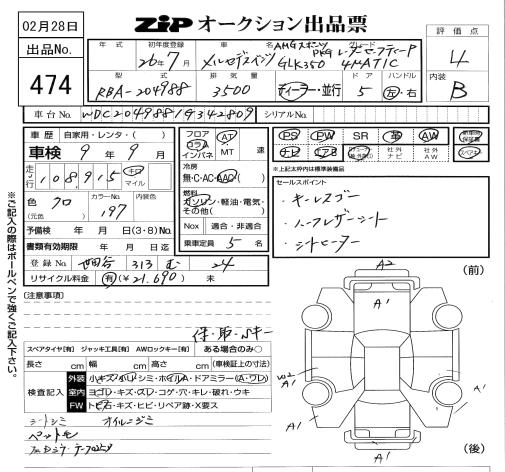 02月28日
ZiP オークション出品票
出品No.
474
評価点
4
内装
B
年式
初年度登録
26年7月
車名
メルセデスベンツ
グレード
AMGスポーツPKG レーダーセーフティーP
GLK350 4MATIC
型式
RBA-204988
排気量
3500
ディーラー・並行
ドア
5
ハンドル
左・右
車台No.
WDC2049881G342809
シリアルNo.
車歴
自家用・レンタ・( )
車検 9年9月
走行
108,915
キロ
マイル
色
(元色)
クロ
カラーNo.
197
内装色
予備検 年 月 日(3・8)No.
書類有効期限 年 月 日迄
登録No. 世田谷 313 む 24
リサイクル料金 有(¥21,690) 未
フロア
コラム
インパネ
AT
MT
速
冷房
無・C・AC・AAC( )
燃料
ガソリン・軽油・電気・
その他( )
Nox 適合・非適合
乗車定員 5名
PS PW SR 革 AW
ナビ
社外ナビ
社外AW
スペアキー
※上記太枠内は標準装備品
セールスポイント
・キーレスゴー
・ハーフレザーシート
・シートヒーター
[注意事項]
保・取・Sキー
スペアタイヤ[有] ジャッキ工具[有] AWロックキー[有] ある場合のみ○
長さ cm 幅 cm 高さ cm (車検証上の寸法)
検査記入
外装 小キズ・小凹・シミ・ホイルA・ドアミラー(A・ワレ)
室内 ヨゴレ・キズ・スレ・コゲ・穴・キレ・破れ・ウキ
FW トビ石・キズ・ヒビ・リペア跡・X要ス
シートシミ オイルニジミ
ペットモ
※ご記入の際はボールペンで強くご記入下さい。
(前)
A2
A1
W2
A1
A1
A1
A1
(後)